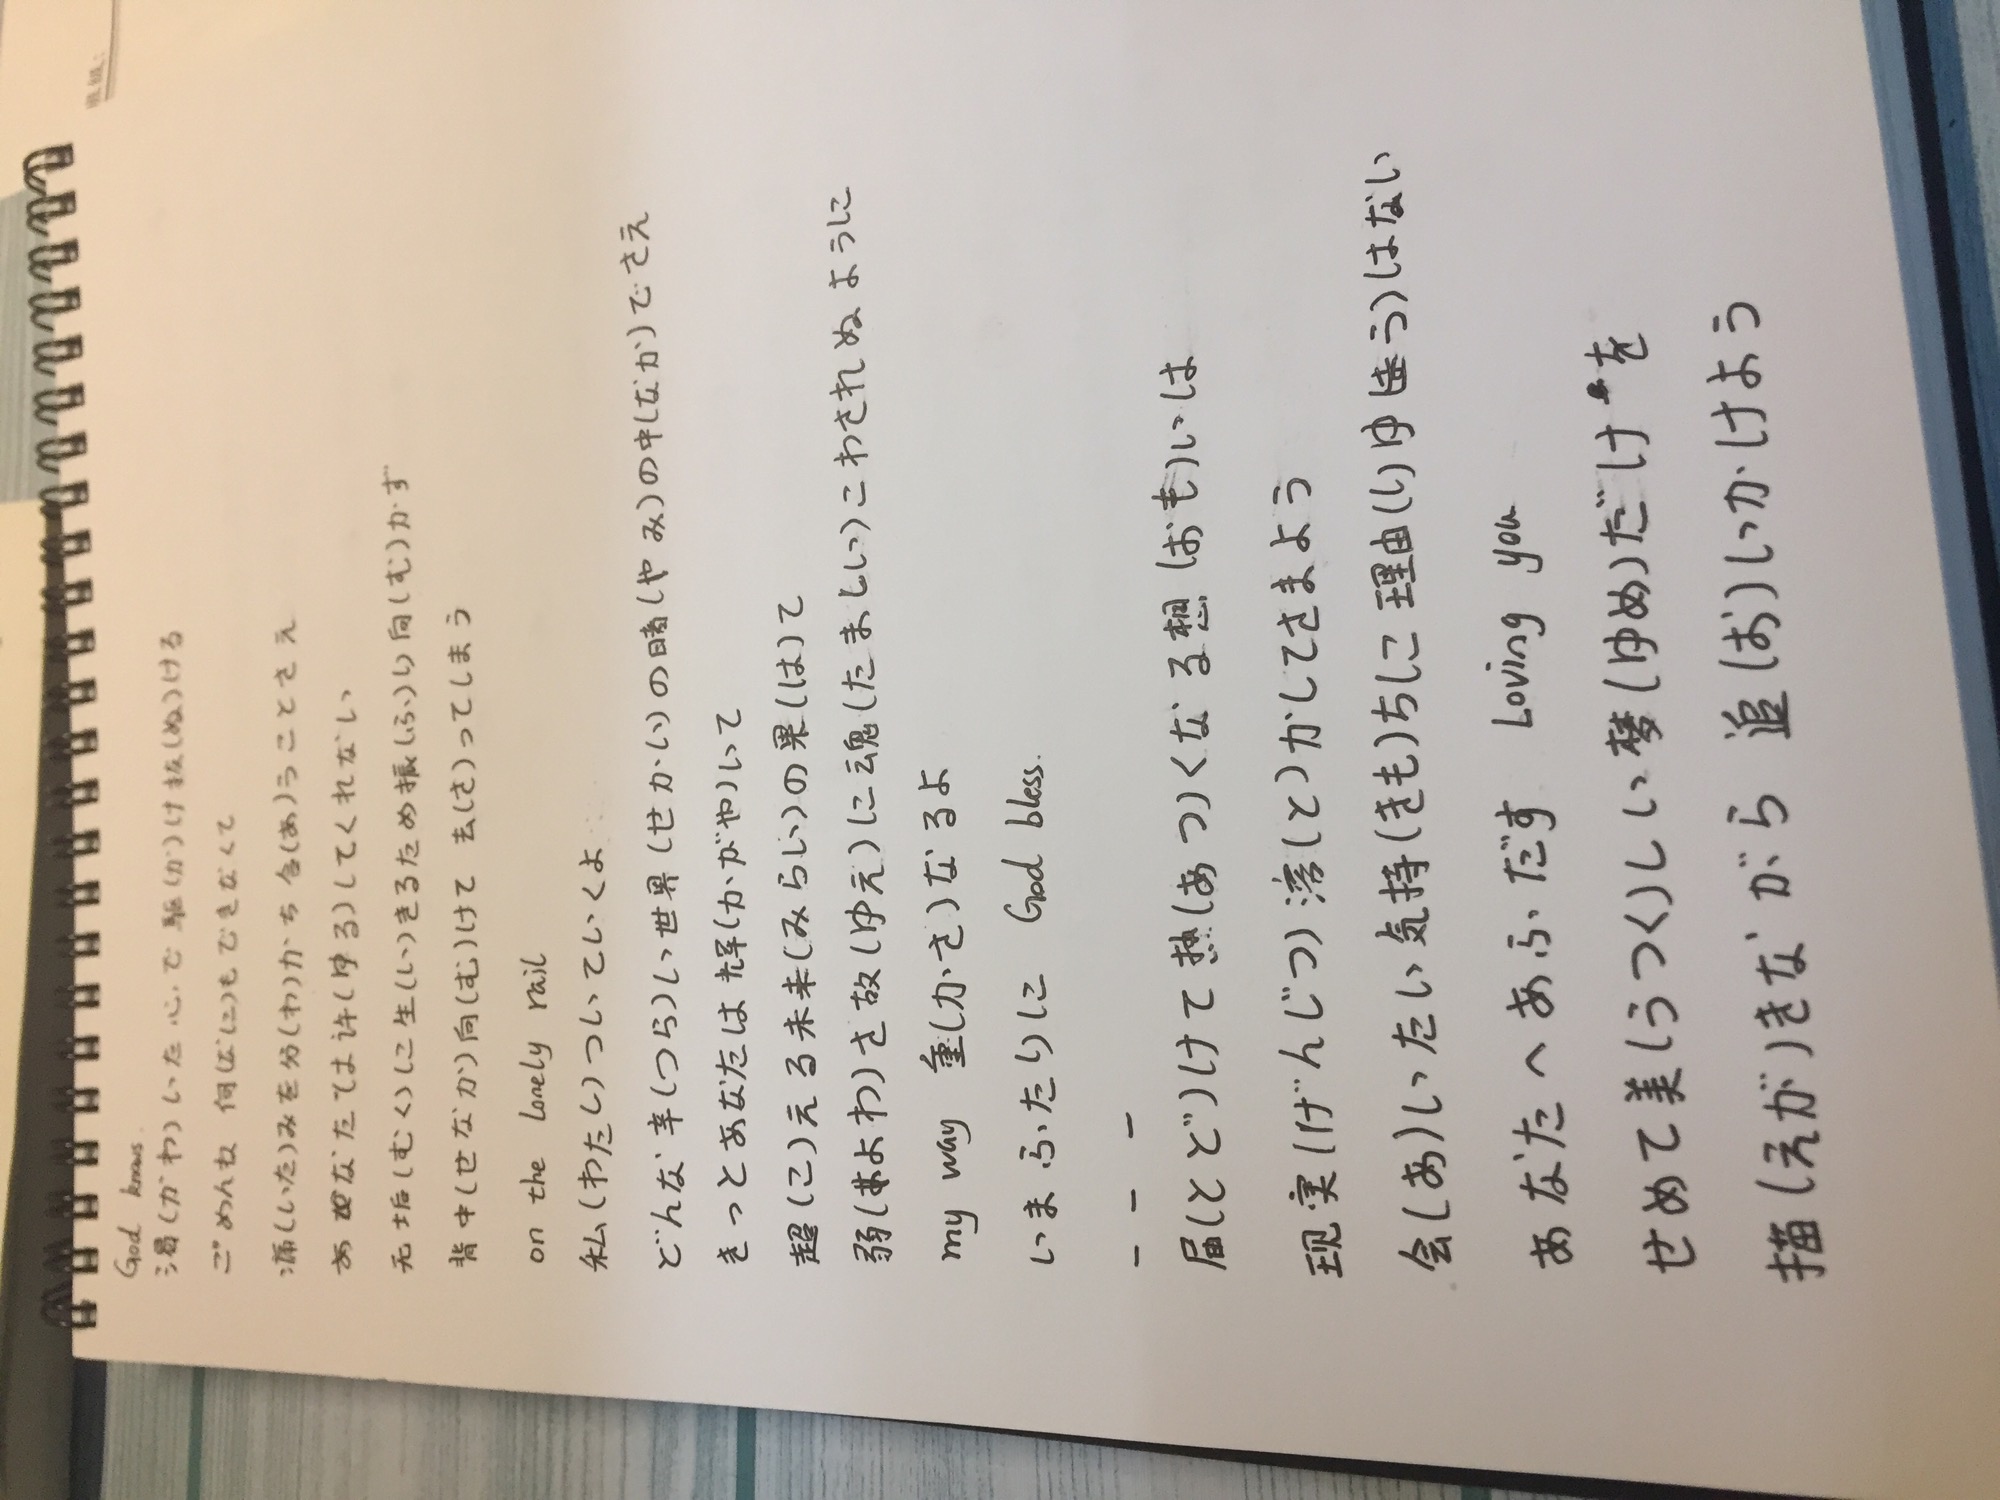 God knows
渇(かわ)いた心で駆(か)け抜(ぬ)ける
ごめんね 何(なに)もできなくて
痛(いた)みを分(わ)かち合(あ)うことさえ
あなたは許(ゆる)してくれない
无垢(むく)に生(い)きるため振(ふ)り向(む)かず
背中(せなか)向(む)けて 去(さ)ってしまう
on the lonely rail
私(わたし)ついていくよ
どんな辛(つら)い世界(せかい)の暗(やみ)の中(なか)でさえ
きっとあなたは輝(かがや)いて
超(こ)える未来(みらい)の果(は)て
弱(よわ)さ故(ゆえ)に魂(たましい)こわされぬように
my way 重(かさ)なるよ
いまふたりに God bless.
- - -
届(とど)けて熱(あつ)くなる想(おも)いは
现実(げんじつ)溶(と)かしてさまよう
会(あ)いったい気持(きも)ちに理由(りゆう)はない
あなたへあふだす Loving you
せめて美(うつく)しい夢(ゆめ)だけを
描(えが)きながら 追(お)いかけよう